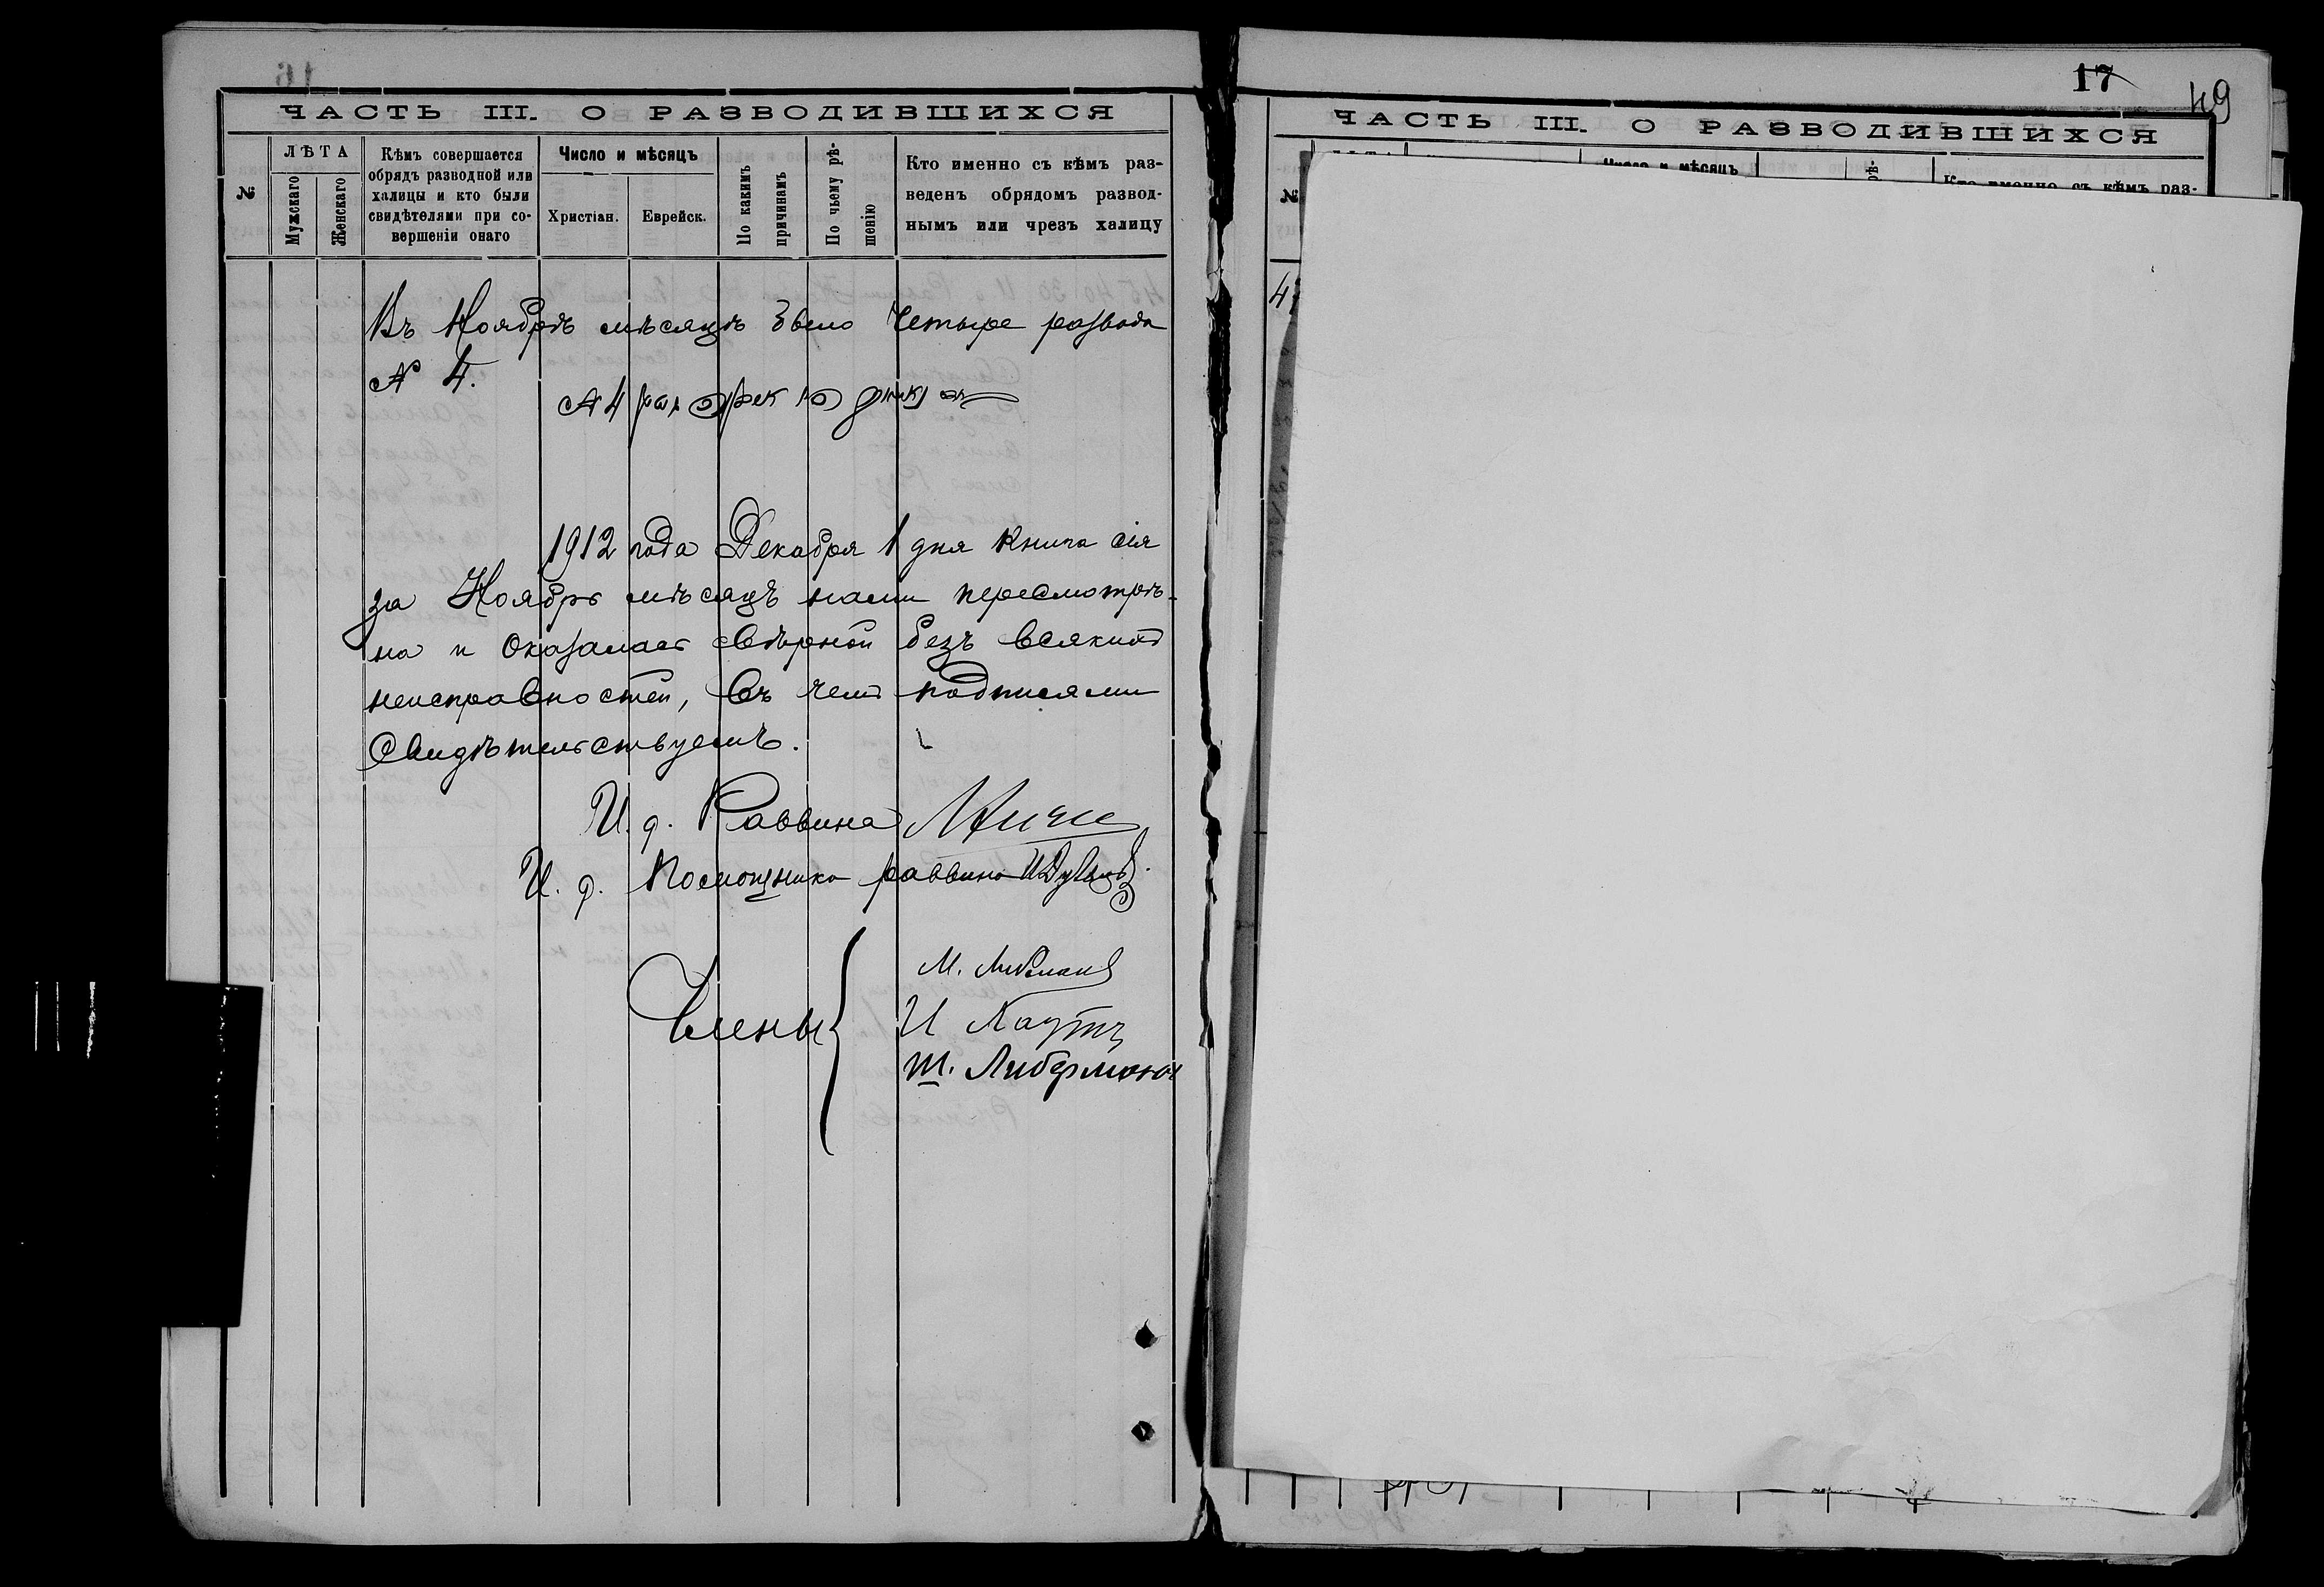 ЧАСТЬ III. О РАЗВОДИВШИХСЯ
№
ЛѢТА
Мужскаго
Женскаго
Кѣмъ совершается
обрядъ разводной или
халицы и кто были
свидѣтелями при со-
вершеніи онаго
Число и мѣсяцъ
Христіан.
Еврейск.
По какимъ
причинамъ
По чьему рѣ-
шенію
Кто именно съ кѣмъ раз-
веденъ обрядомъ развод-
нымъ или чрезъ халицу
Въ Ноябрѣ мѣсяцѣ было Четыре развода
№ 4.
№ 4
1912 года Декабря 1 дня Книга сія
за Ноябрь мѣсяцъ нами пересмотрѣ-
на и оказалась вѣрной безъ всякихъ
неисправностей, въ чемъ подписями
Свидѣтельствуемъ.
И. д. Раввина
И. д. Помощника раввина
Члены
М. Либманъ
И Лаутъ
Ш. Либерманъ
17
49
ЧАСТЬ III. О РАЗВОДИВШИХСЯ
№
Число и мѣсяцъ
рѣ-
Кто именно съ кѣмъ раз-